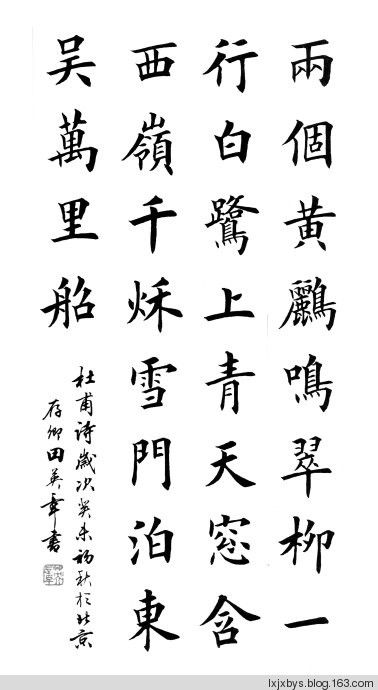 兩個黄鸝鳴翠柳一
行白鷺上青天窓含
西嶺千秌雪門泊東
吳萬里船
杜甫詩歲次癸未初秋於北京
存卿田英章書
lxjxbys.blog.163.com